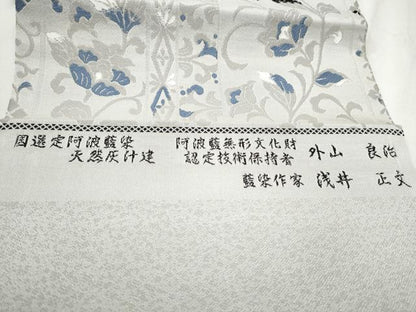 国選定阿波藍染
天然灰汁建
阿波藍無形文化財
認定技術保持者 外山 良治
藍染作家 浅井 正文